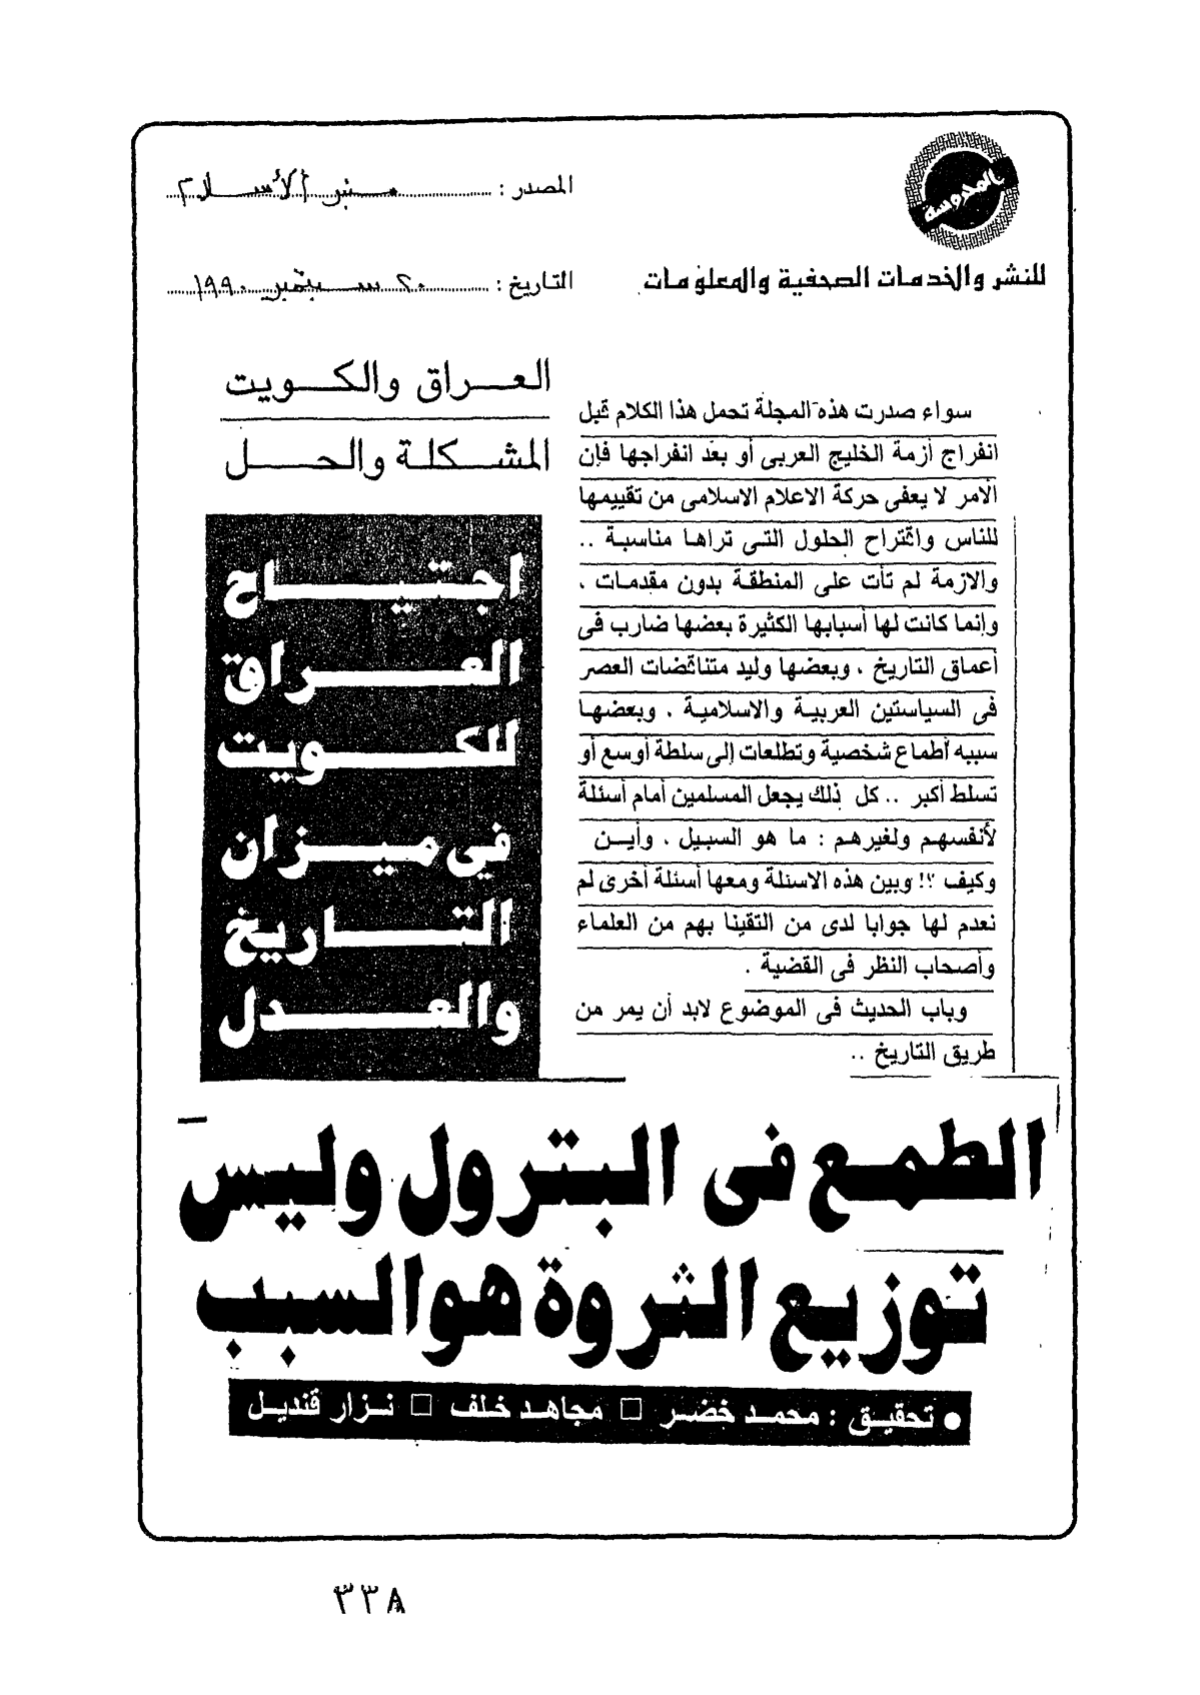 المحروسة
للنشر والخدمات الصحفية والمعلومات
المصدر : منبر الأسلام
التاريخ : ٢٠ سبتمبر ١٩٩٠
العراق والكويت
المشكلة والحل
اجتياح
العراق
للكويت
في ميزان
التاريخ
والعدل
سواء صدرت هذه المجلة تحمل هذا الكلام قبل
انفراج أزمة الخليج العربى أو بعد انفراجها فإن
الأمر لا يعفى حركة الاعلام الاسلامى من تقييمها
للناس واقتراح الحلول التى تراها مناسبة ..
والازمة لم تأت على المنطقة بدون مقدمات ،
وإنما كانت لها أسبابها الكثيرة بعضها ضارب فى
أعماق التاريخ ، وبعضها وليد متناقضات العصر
فى السياستين العربية والاسلامية ، وبعضها
سببه أطماع شخصية وتطلعات إلى سلطة أوسع أو
تسلط أكبر .. كل ذلك يجعل المسلمين أمام أسئلة
لأنفسهم ولغيرهم : ما هو السبيل ، وأين
وكيف ؟! وبين هذه الاسئلة ومعها أسئلة أخرى لم
نعدم لها جوابا لدى من التقينا بهم من العلماء
وأصحاب النظر فى القضية .
وباب الحديث فى الموضوع لابد أن يمر من
طريق التاريخ ..
الطمع فى البترول وليس
توزيع الثروة هو السبب
● تحقيق : محمد خضر □ مجاهد خلف □ نزار قنديل
٣٣٨